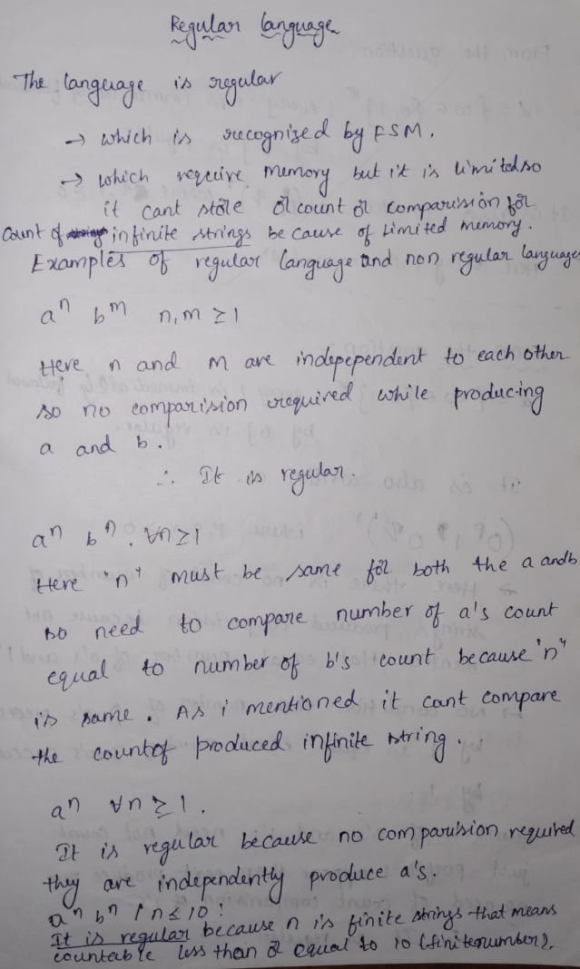 Regular Language
The language is regular
→ which is recognized by FSM.
→ which require memory but it is limited so
it cant store or count or comparision for
count of infinite strings because of limited memory.
Examples of regular language and non regular languages
aⁿ bᵐ n,m ≥ 1
Here n and m are indepependent to each other
so no comparision required while producing
a and b.
∴ It is regular.
aⁿ bⁿ. ∀n≥1
Here "n" must be same for both the a and b
so need to compare number of a's count
equal to number of b's count because "n"
is same. As i mentioned it cant compare
the count of produced infinite string.
aⁿ ∀n ≥ 1.
It is regular because no comparision required
they are independently produce a's.
aⁿ bⁿ / n ≤ 10 :
It is regular because n is finite strings that means
countable less than or equal to 10 (finite number).